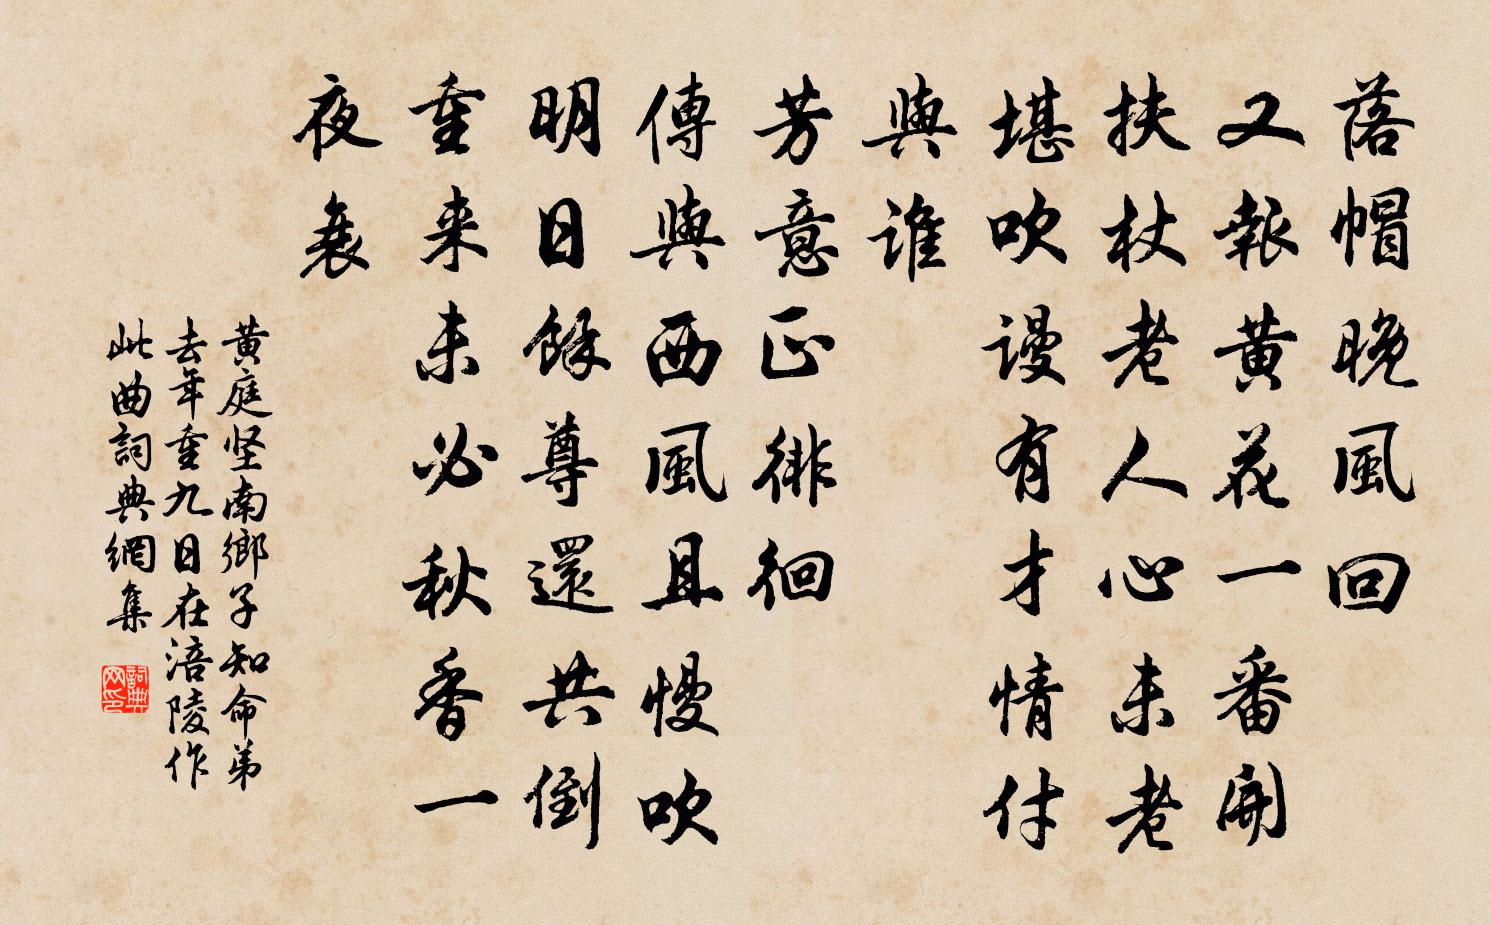 落帽晚風回
又報黃花一番開
扶杖老人心未老
堪吹謾有才情付
與誰
芳意正徘徊
傳與西風且慢吹
明日餘尊還共倒
重来未必秋香一
夜衰
黄庭坚南鄉子知命弟
去年重九日在涪陵作
此曲詞典網集
詞典
网印